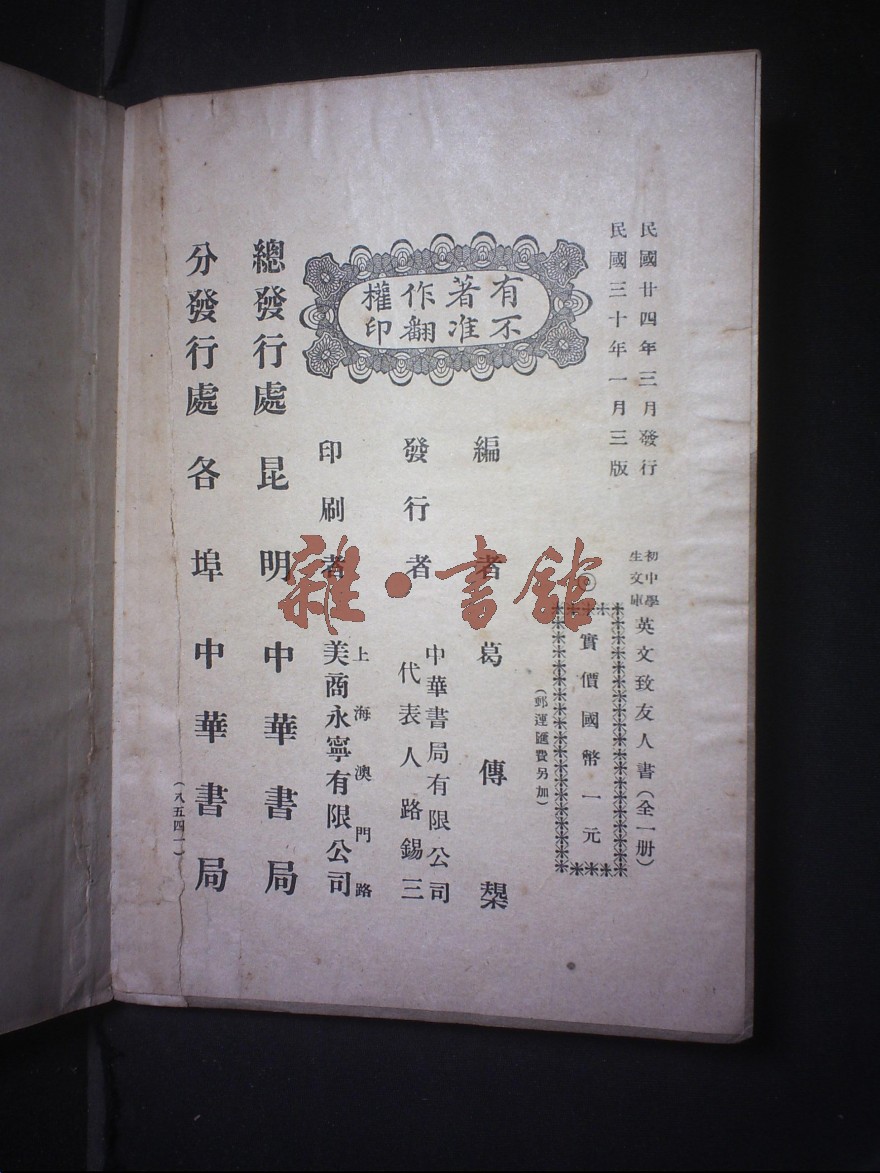 民國廿四年三月發行
民國三十年一月三版
初中學
生文庫
英文致友人書（全一册）
◎
實價國幣一元
（郵運匯費另加）
有著作權
不准翻印
編者 葛傳槼
發行者 中華書局有限公司
代表人路錫三
印刷者 上海澳門路
美商永寧有限公司
總發行處 昆明 中華書局
分發行處 各埠 中華書局
（八五四一）
雜·書館